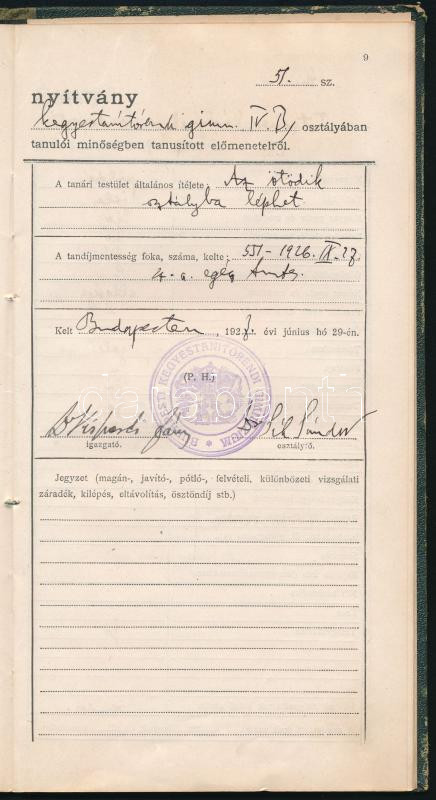 9
51. sz.
nyítvány
kegyestanítórendi gimn. IV. B, osztályában
tanulói minőségben tanusított előmenetelről.
A tanári testület általános ítélete: Az ötödik
osztályba léphet
A tandíjmentesség foka, száma, kelte: 551-1926. IX.
Kelt Budapesten, 192 évi június hó 29-én.
(P. H.)
BUDAPESTI KEGYESTANÍTÓRENDI
Dr Sík Sándor
igazgató. osztályfő.
Jegyzet (magán-, javító-, pótló-, felvételi, különbözeti vizsgálati
záradék, kilépés, eltávolítás, ösztöndíj stb.)